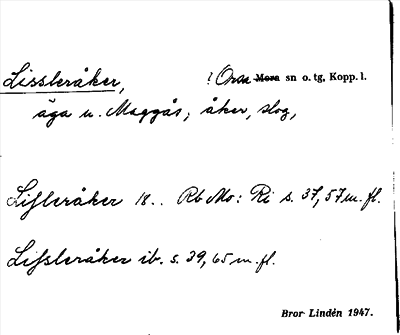 Lissleråker, ! Orsa ~~Mora~~ sn o. tg, Kopp. l.
äga u. Maggås; åker, slog,
Lisleråker 18.. Rb Mo: Ri s. 37, 57 m. fl.
Lissleråker ib. s. 39, 65 m. fl.
Bror Lindén 1947.